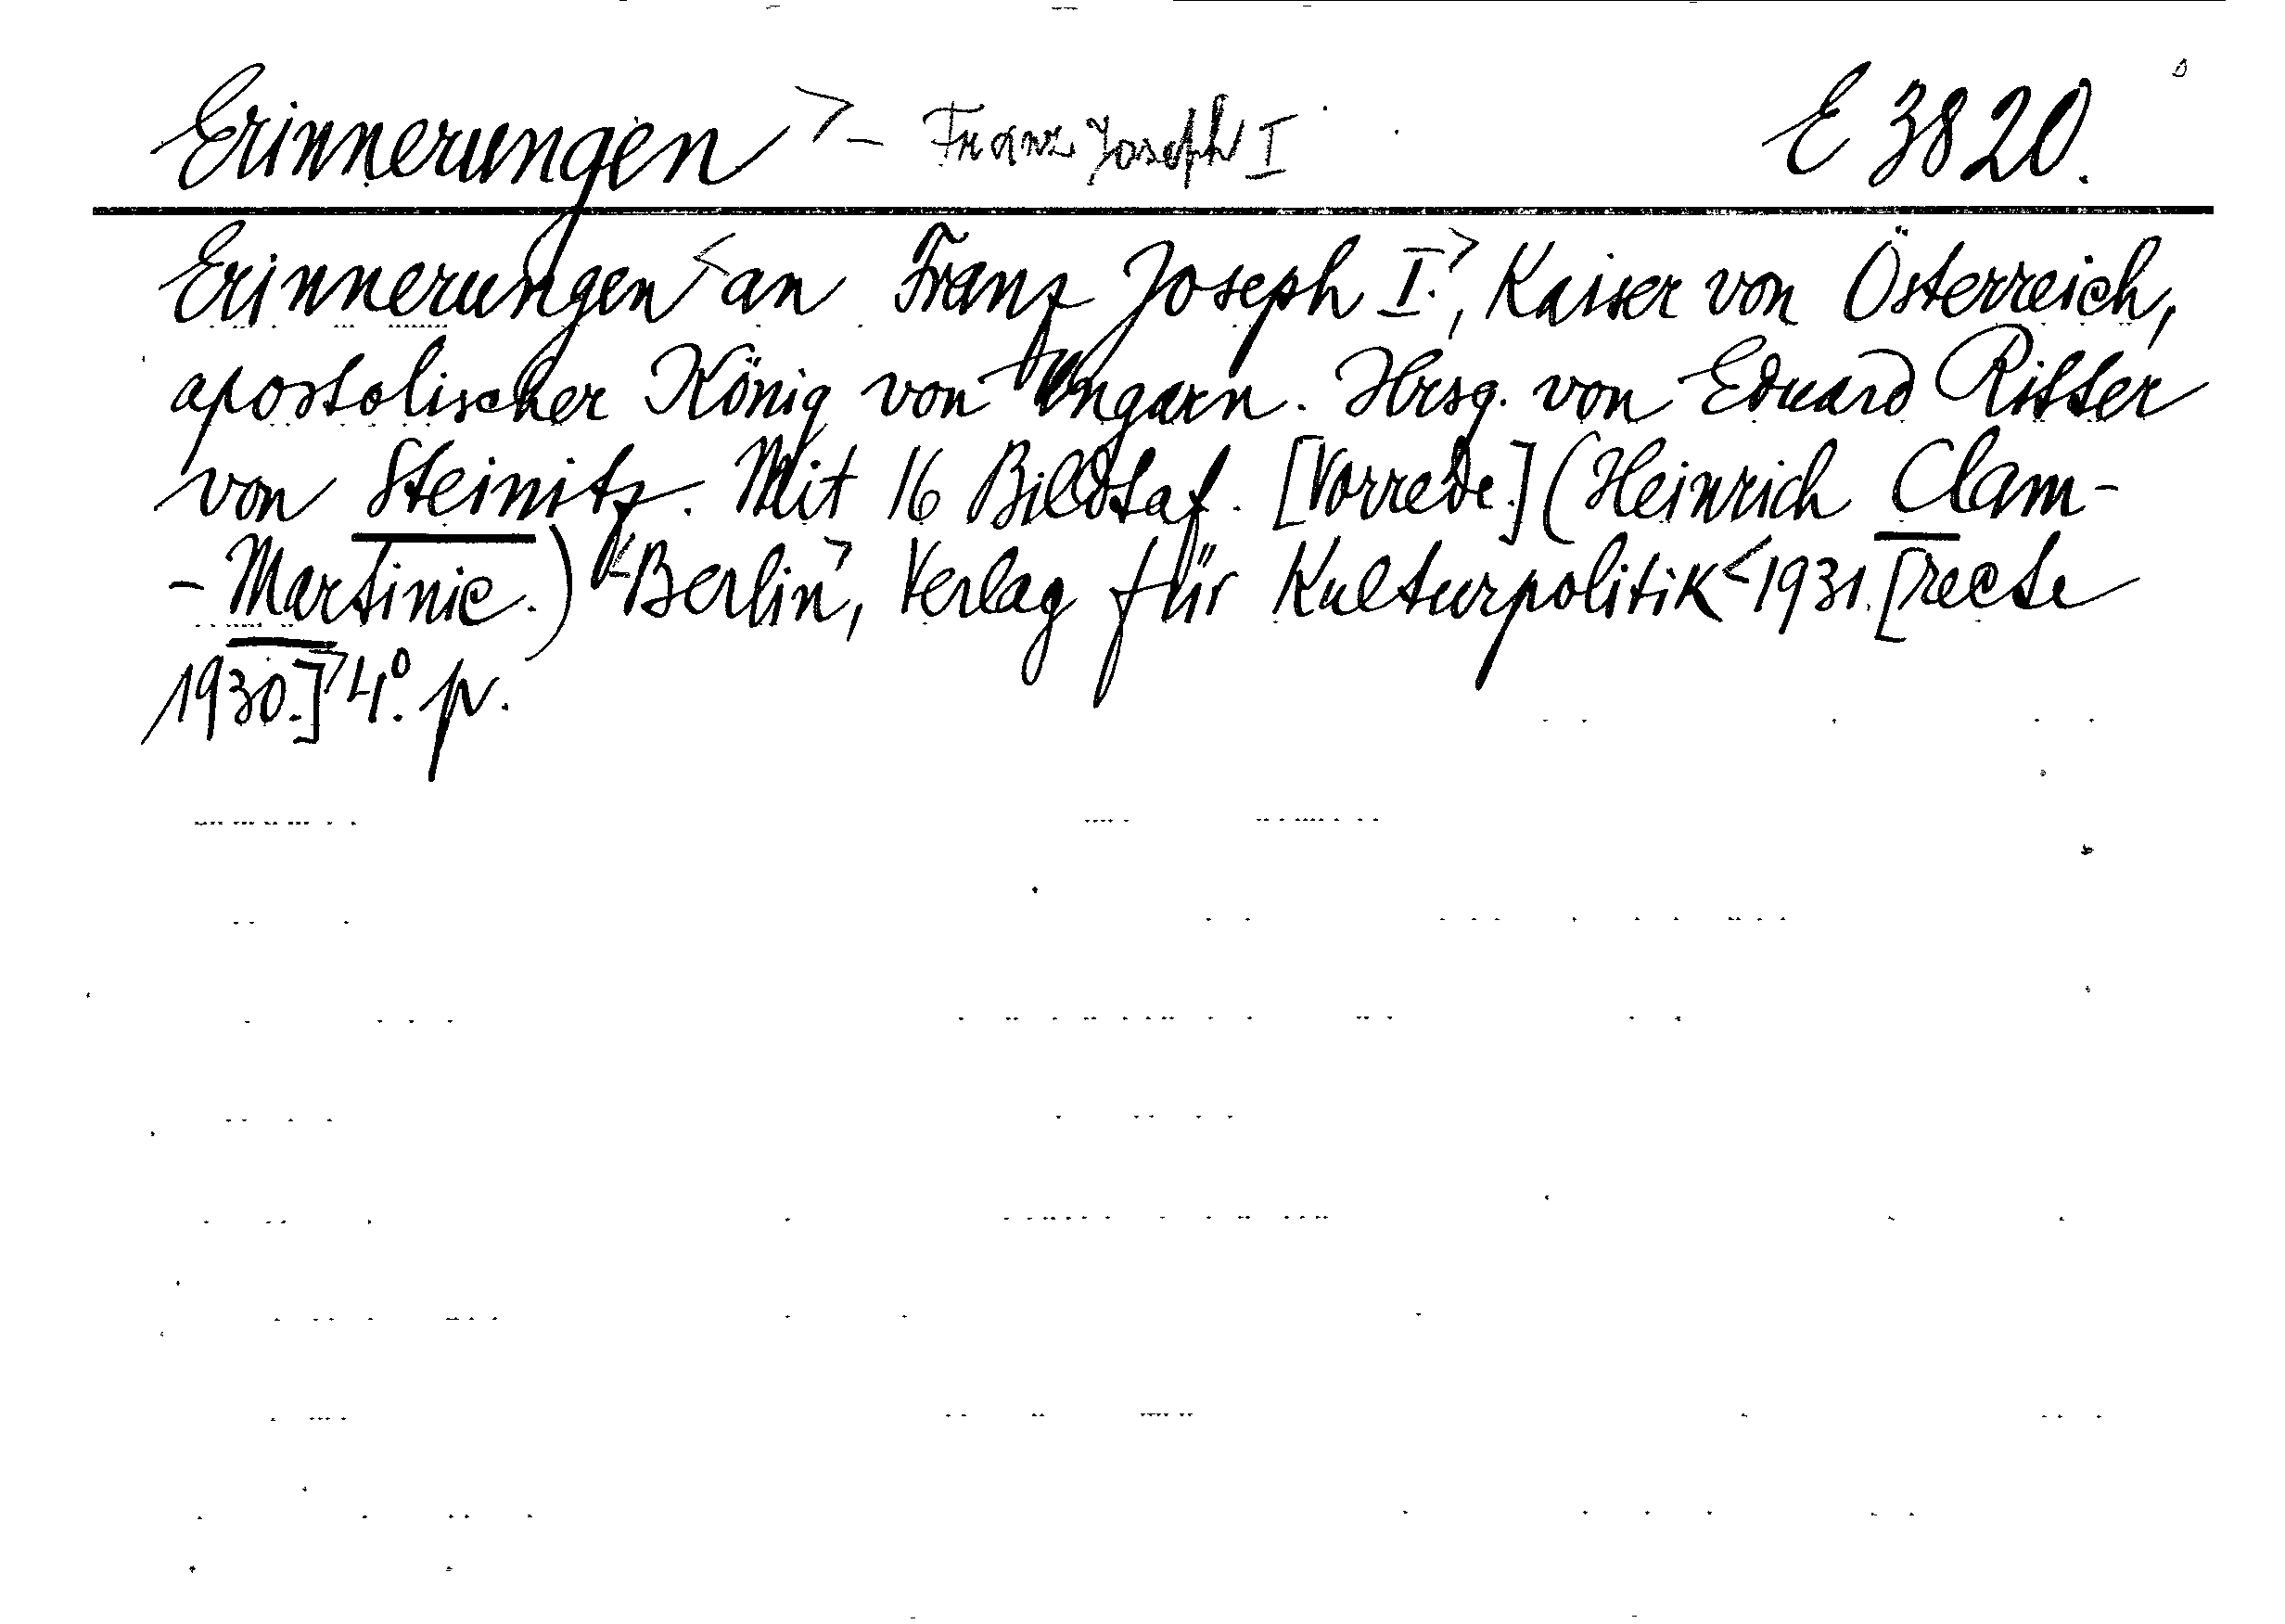 Erinnerungen > - Franz Joseph I E 3820.
Erinnerungen < an Franz Joseph I. >, Kaiser von Österreich,
apostolischer König von Ungarn. Hrsg. von Eduard Ritter
von Steinitz. Mit 16 Bildtaf. [Vorrede.] (Heinrich Clam-
-Martinic.) < Berlin >, Verlag für Kulturpolitik < 1931. [recte
1930.] > 4°. p.